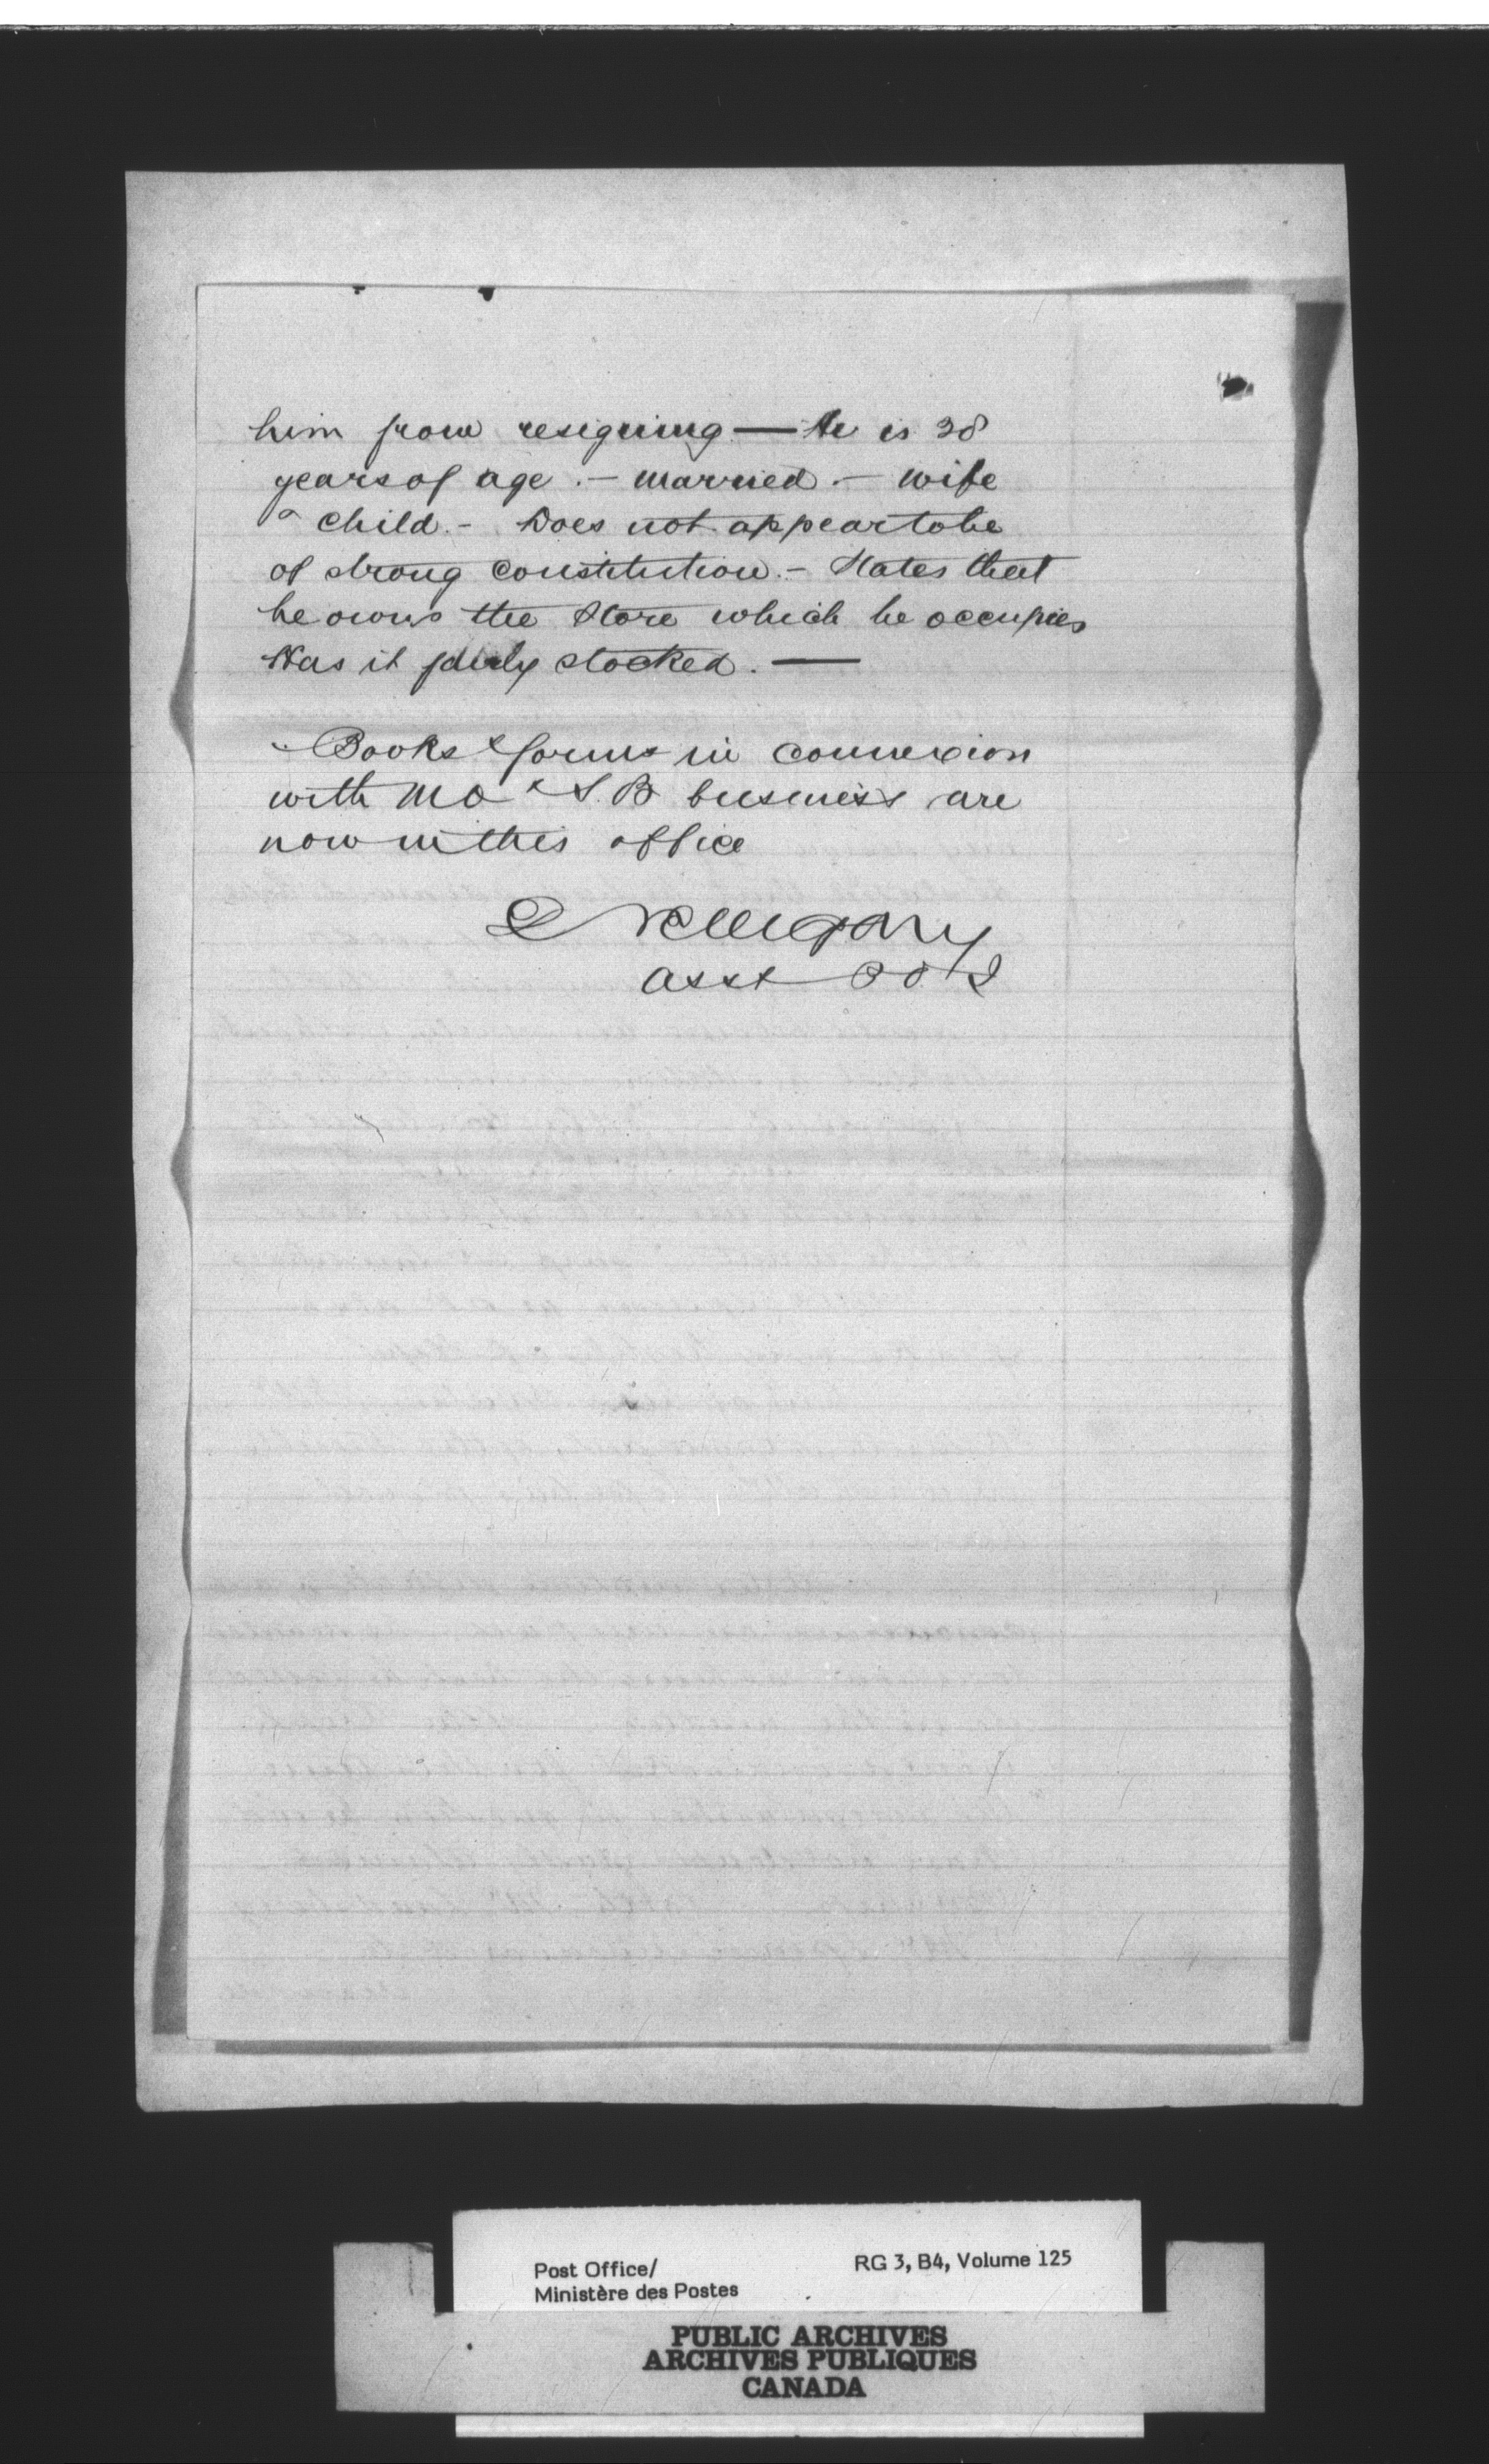 him from resigning — He is 38
years of age. — married. — wife
& child. — Does not appear to be
of strong constitution. — States that
he owns the store which he occupies
Has it fairly stocked. —
Books & forms in connexion
with MO & S.B business are
now in this office
Asst P O I
Post Office/
Ministère des Postes
RG 3, B4, Volume 125
PUBLIC ARCHIVES
ARCHIVES PUBLIQUES
CANADA